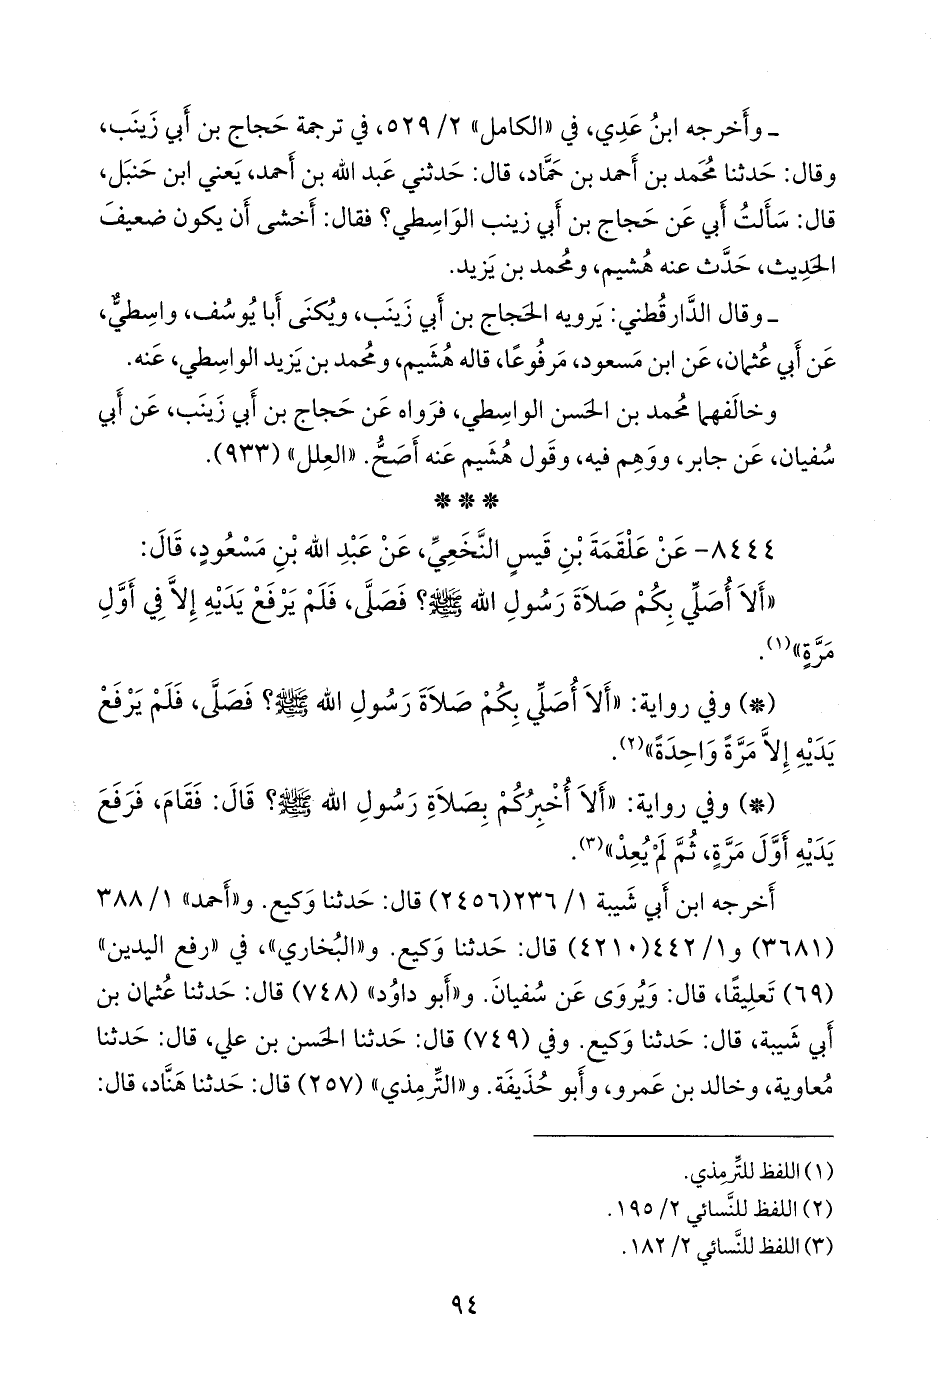 ـ وأَخرجه ابنُ عَدِي، في «الكامل» ٢/ ٥٢٩، في ترجمة حَجاج بن أَبي زَينَب،
وقال: حَدثنا مُحَمد بن أَحمد بن حَمَّاد، قال: حَدثني عَبد الله بن أَحمد، يَعني ابن حَنبَل،
قال: سَأَلتُ أَبي عَن حَجاج بن أَبي زينب الوَاسِطي؟ فقال: أَخشى أَن يكون ضعيفَ
الحَدِيث، حَدَّث عنه هُشيم، ومُحمد بن يَزيد.
ـ وقال الدَّارقُطني: يَرويه الحَجاج بن أَبي زَينَب، ويُكنَى أَبا يُوسُف، واسِطيٌّ،
عَن أَبي عُثمان، عَن ابن مَسعود، مَرفُوعًا، قاله هُشَيم، ومُحمد بن يَزيد الواسِطي، عَنه.
وخالَفهما مُحمد بن الحَسن الواسِطي، فرَواه عَن حَجاج بن أَبي زَينَب، عَن أَبي
سُفيان، عَن جابر، ووَهِم فيه، وقَول هُشَيم عَنه أَصَحُّ. «العِلل» (٩٣٣).
* * *
٨٤٤٤- عَنْ عَلْقَمَةَ بْنِ قَيسٍ النَّخَعِيِّ، عَنْ عَبْدِ الله بْنِ مَسْعُودٍ، قَالَ:
«أَلاَ أُصَلِّي بِكُمْ صَلاَةَ رَسُولِ الله ﷺ؟ فَصَلَّى، فَلَمْ يَرْفَعْ يَدَيْهِ إِلاَّ فِي أَوَّلِ
مَرَّةٍ»(١).
(*) وفي رواية: «أَلاَ أُصَلِّي بِكُمْ صَلاَةَ رَسُولِ الله ﷺ؟ فَصَلَّى، فَلَمْ يَرْفَعْ
يَدَيْهِ إِلاَّ مَرَّةً وَاحِدَةً»(٢).
(*) وفي رواية: «أَلاَ أُخْبِرُكُمْ بِصَلاَةِ رَسُولِ الله ﷺ؟ قَالَ: فَقَامَ، فَرَفَعَ
يَدَيْهِ أَوَّلَ مَرَّةٍ، ثُمَّ لَمْ يُعِدْ»(٣).
أَخرجه ابن أَبي شَيبة ١/ ٢٣٦(٢٤٥٦) قال: حَدثنا وَكيع. و«أَحمد» ١/ ٣٨٨
(٣٦٨١) و١/ ٤٤٢(٤٢١٠) قال: حَدثنا وَكيع. و«البُخاري»، في «رفع اليدين»
(٦٩) تَعليقًا، قال: وَيُروَى عَن سُفيانَ. و«أَبو داوُد» (٧٤٨) قال: حَدثنا عُثمان بن
أَبي شَيبة، قال: حَدثنا وَكيع. وفي (٧٤٩) قال: حَدثنا الحَسن بن علي، قال: حَدثنا
مُعاوية، وخالد بن عَمرو، وأَبو حُذَيفَة. و«التِّرمِذي» (٢٥٧) قال: حَدثنا هَنَّاد، قال:
(١) اللفظ للتِّرمِذي.
(٢) اللفظ للنَّسائي ٢/ ١٩٥.
(٣) اللفظ للنَّسائي ٢/ ١٨٢.
٩٤